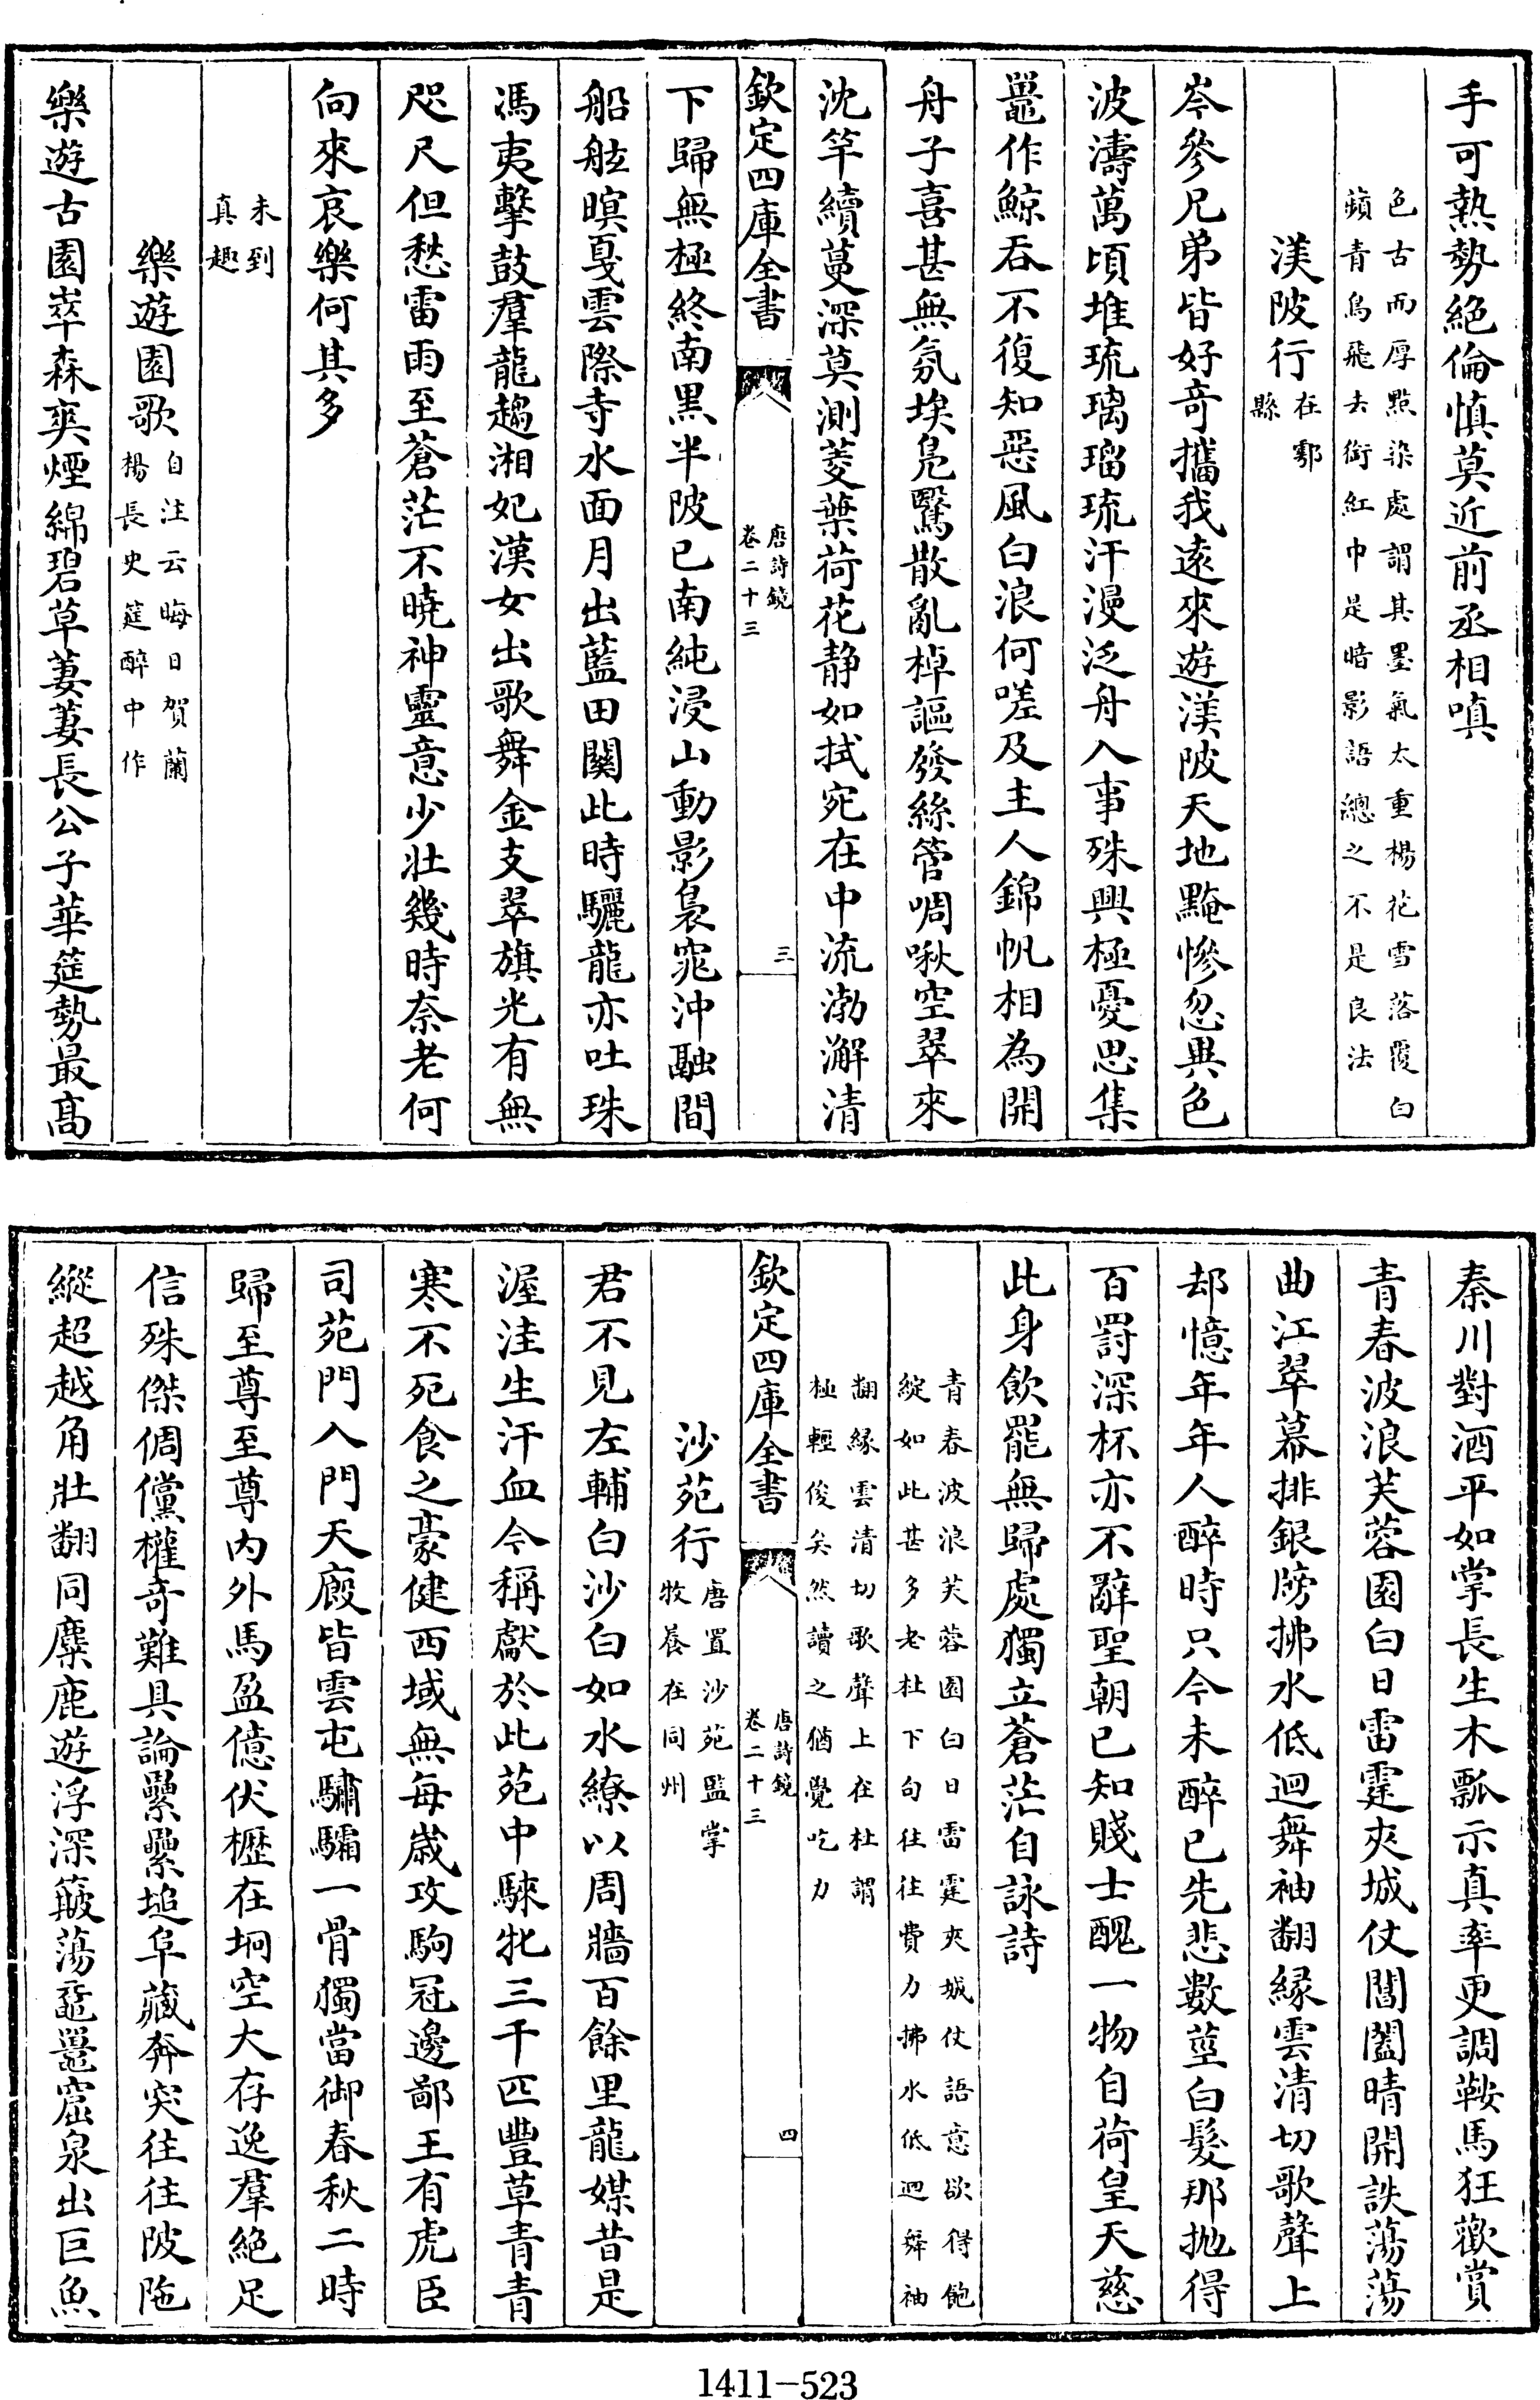 手可熱勢絶倫慎莫近前丞相嗔
色古而厚點染處謂其墨氣太重楊花雪落覆白
蘋青鳥飛去銜紅巾是暗影語總之不是良法
渼陂行在鄠縣
岑參兄弟皆好奇攜我遠來遊渼陂天地黤慘忽異色
波濤萬頃堆琉璃瑠琉汗漫泛舟入事殊興極憂思集
鼉作鯨吞不復知惡風白浪何嗟及主人錦帆相為開
舟子喜甚無氛埃鳧鷖散亂棹謳發絲管啁啾空翠來
沈竿續蔓深莫測菱葉荷花静如拭宛在中流渤澥清
欽定四庫全書
唐詩鏡
卷二十三
三
下歸無極終南黒半陂已南純浸山動影裊窕沖融間
船舷暝戛雲際寺水面月出藍田關此時驪龍亦吐珠
馮夷擊鼓羣龍趨湘妃漢女出歌舞金支翠旗光有無
咫尺但愁雷雨至蒼茫不曉神靈意少壯幾時奈老何
向來哀樂何其多
未到
真趣
樂遊園歌自注云晦日賀蘭楊長史筵醉中作
樂遊古園崒森爽煙綿碧草萋萋長公子華筵勢最髙
秦川對酒平如掌長生木瓢示真率更調鞍馬狂歡賞
青春波浪芙蓉園白日雷霆夾城仗閶闔晴開詄蕩蕩
曲江翠幕排銀牓拂水低迴舞袖翻緣雲清切歌聲上
却憶年年人醉時只今未醉已先悲數莖白髮那抛得
百罰深杯亦不辭聖朝已知賤士醜一物自荷皇天慈
此身飲罷無歸處獨立蒼茫自詠詩
青春波浪芙蓉園白日雷霆夾城仗語意欲得飽
綻如此甚多老杜下句往往費力拂水低迴舞袖
翻緣雲清切歌聲上在杜謂
極輕俊矣然讀之猶覺吃力
欽定四庫全書
唐詩鏡
卷二十三
四
沙苑行唐置沙苑監掌牧養在同州
君不見左輔白沙白如水繚以周牆百餘里龍媒昔是
渥洼生汗血今稱獻於此苑中騋牝三千匹豐草青青
寒不死食之豪健西域無每歲攻駒冠邊鄙王有虎臣
司苑門入門天廐皆雲屯驌驦一骨獨當御春秋二時
歸至尊至尊内外馬盈億伏櫪在坰空大存逸羣絶足
信殊傑倜儻權奇難具論纍纍塠阜藏奔突往往陂陁
縱超越角壯翻同麋鹿遊浮深簸蕩黿鼉窟泉出巨魚
1411-523